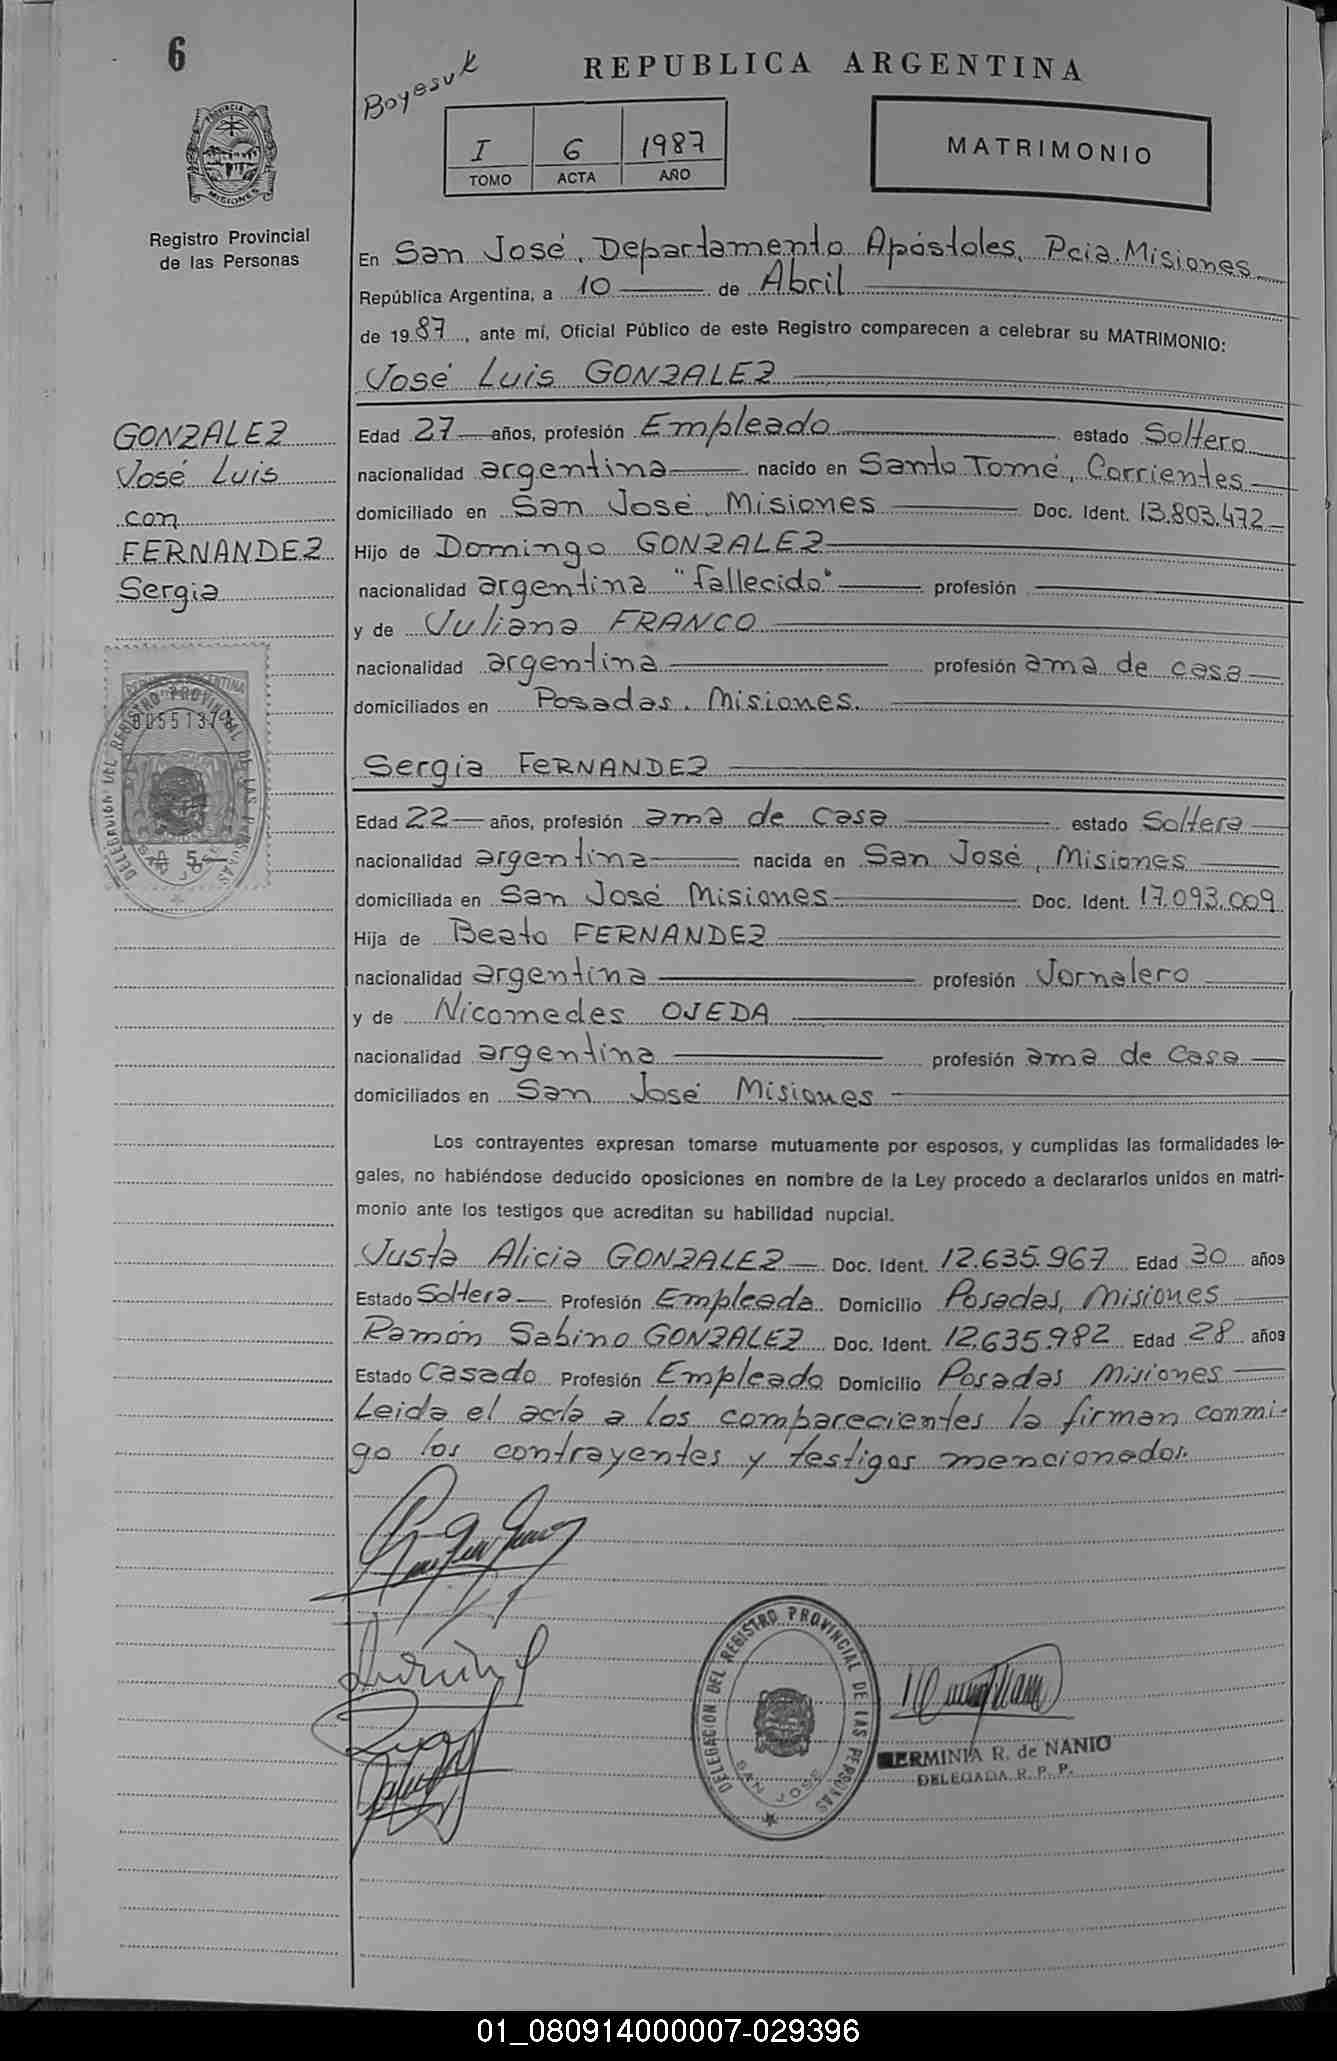 6
Boyesuk
REPUBLICA ARGENTINA
I 6 1987
TOMO ACTA AÑO
MATRIMONIO
PROVINCIA
MISIONES
Registro Provincial
de las Personas
En San José, Departamento Apóstoles, Pcia. Misiones
República Argentina, a 10 de Abril
de 1987, ante mí, Oficial Público de este Registro comparecen a celebrar su MATRIMONIO:
José Luis GONZALEZ
GONZALEZ
José Luis
con
FERNANDEZ
Sergia
Edad 27 años, profesión Empleado estado Soltero
nacionalidad argentina nacido en Santo Tomé, Corrientes
domiciliado en San José, Misiones Doc. Ident. 13.803.472
Hijo de Domingo GONZALEZ
nacionalidad argentina "fallecido" profesión
y de Juliana FRANCO
nacionalidad argentina profesión ama de casa
domiciliados en Posadas. Misiones.
DELEGACION DEL REGISTRO PROVINCIAL DE LAS PERSONAS
Sergia FERNANDEZ
Edad 22 años, profesión ama de casa estado Soltera
nacionalidad argentina nacida en San José, Misiones
domiciliada en San José Misiones Doc. Ident. 17.093.009
Hija de Beato FERNANDEZ
nacionalidad argentina profesión Jornalero
y de Nicomedes OJEDA
nacionalidad argentina profesión ama de casa
domiciliados en San José Misiones
Los contrayentes expresan tomarse mutuamente por esposos, y cumplidas las formalidades le-
gales, no habiéndose deducido oposiciones en nombre de la Ley procedo a declararlos unidos en matri-
monio ante los testigos que acreditan su habilidad nupcial.
Justa Alicia GONZALEZ Doc. Ident. 12.635.967 Edad 30 años
Estado Soltera Profesión Empleada Domicilio Posadas, Misiones
Ramón Sabino GONZALEZ Doc. Ident. 12.635.982 Edad 28 años
Estado Casado Profesión Empleado Domicilio Posadas Misiones
Leida el acta a los comparecientes la firman conmi-
go los contrayentes y testigos mencionados.
DELEGACION DEL REGISTRO PROVINCIAL DE LAS PERSONAS
SAN JOSE
HERMINIA R. de NANIO
DELEGADA R. P. P.
01_080914000007-029396